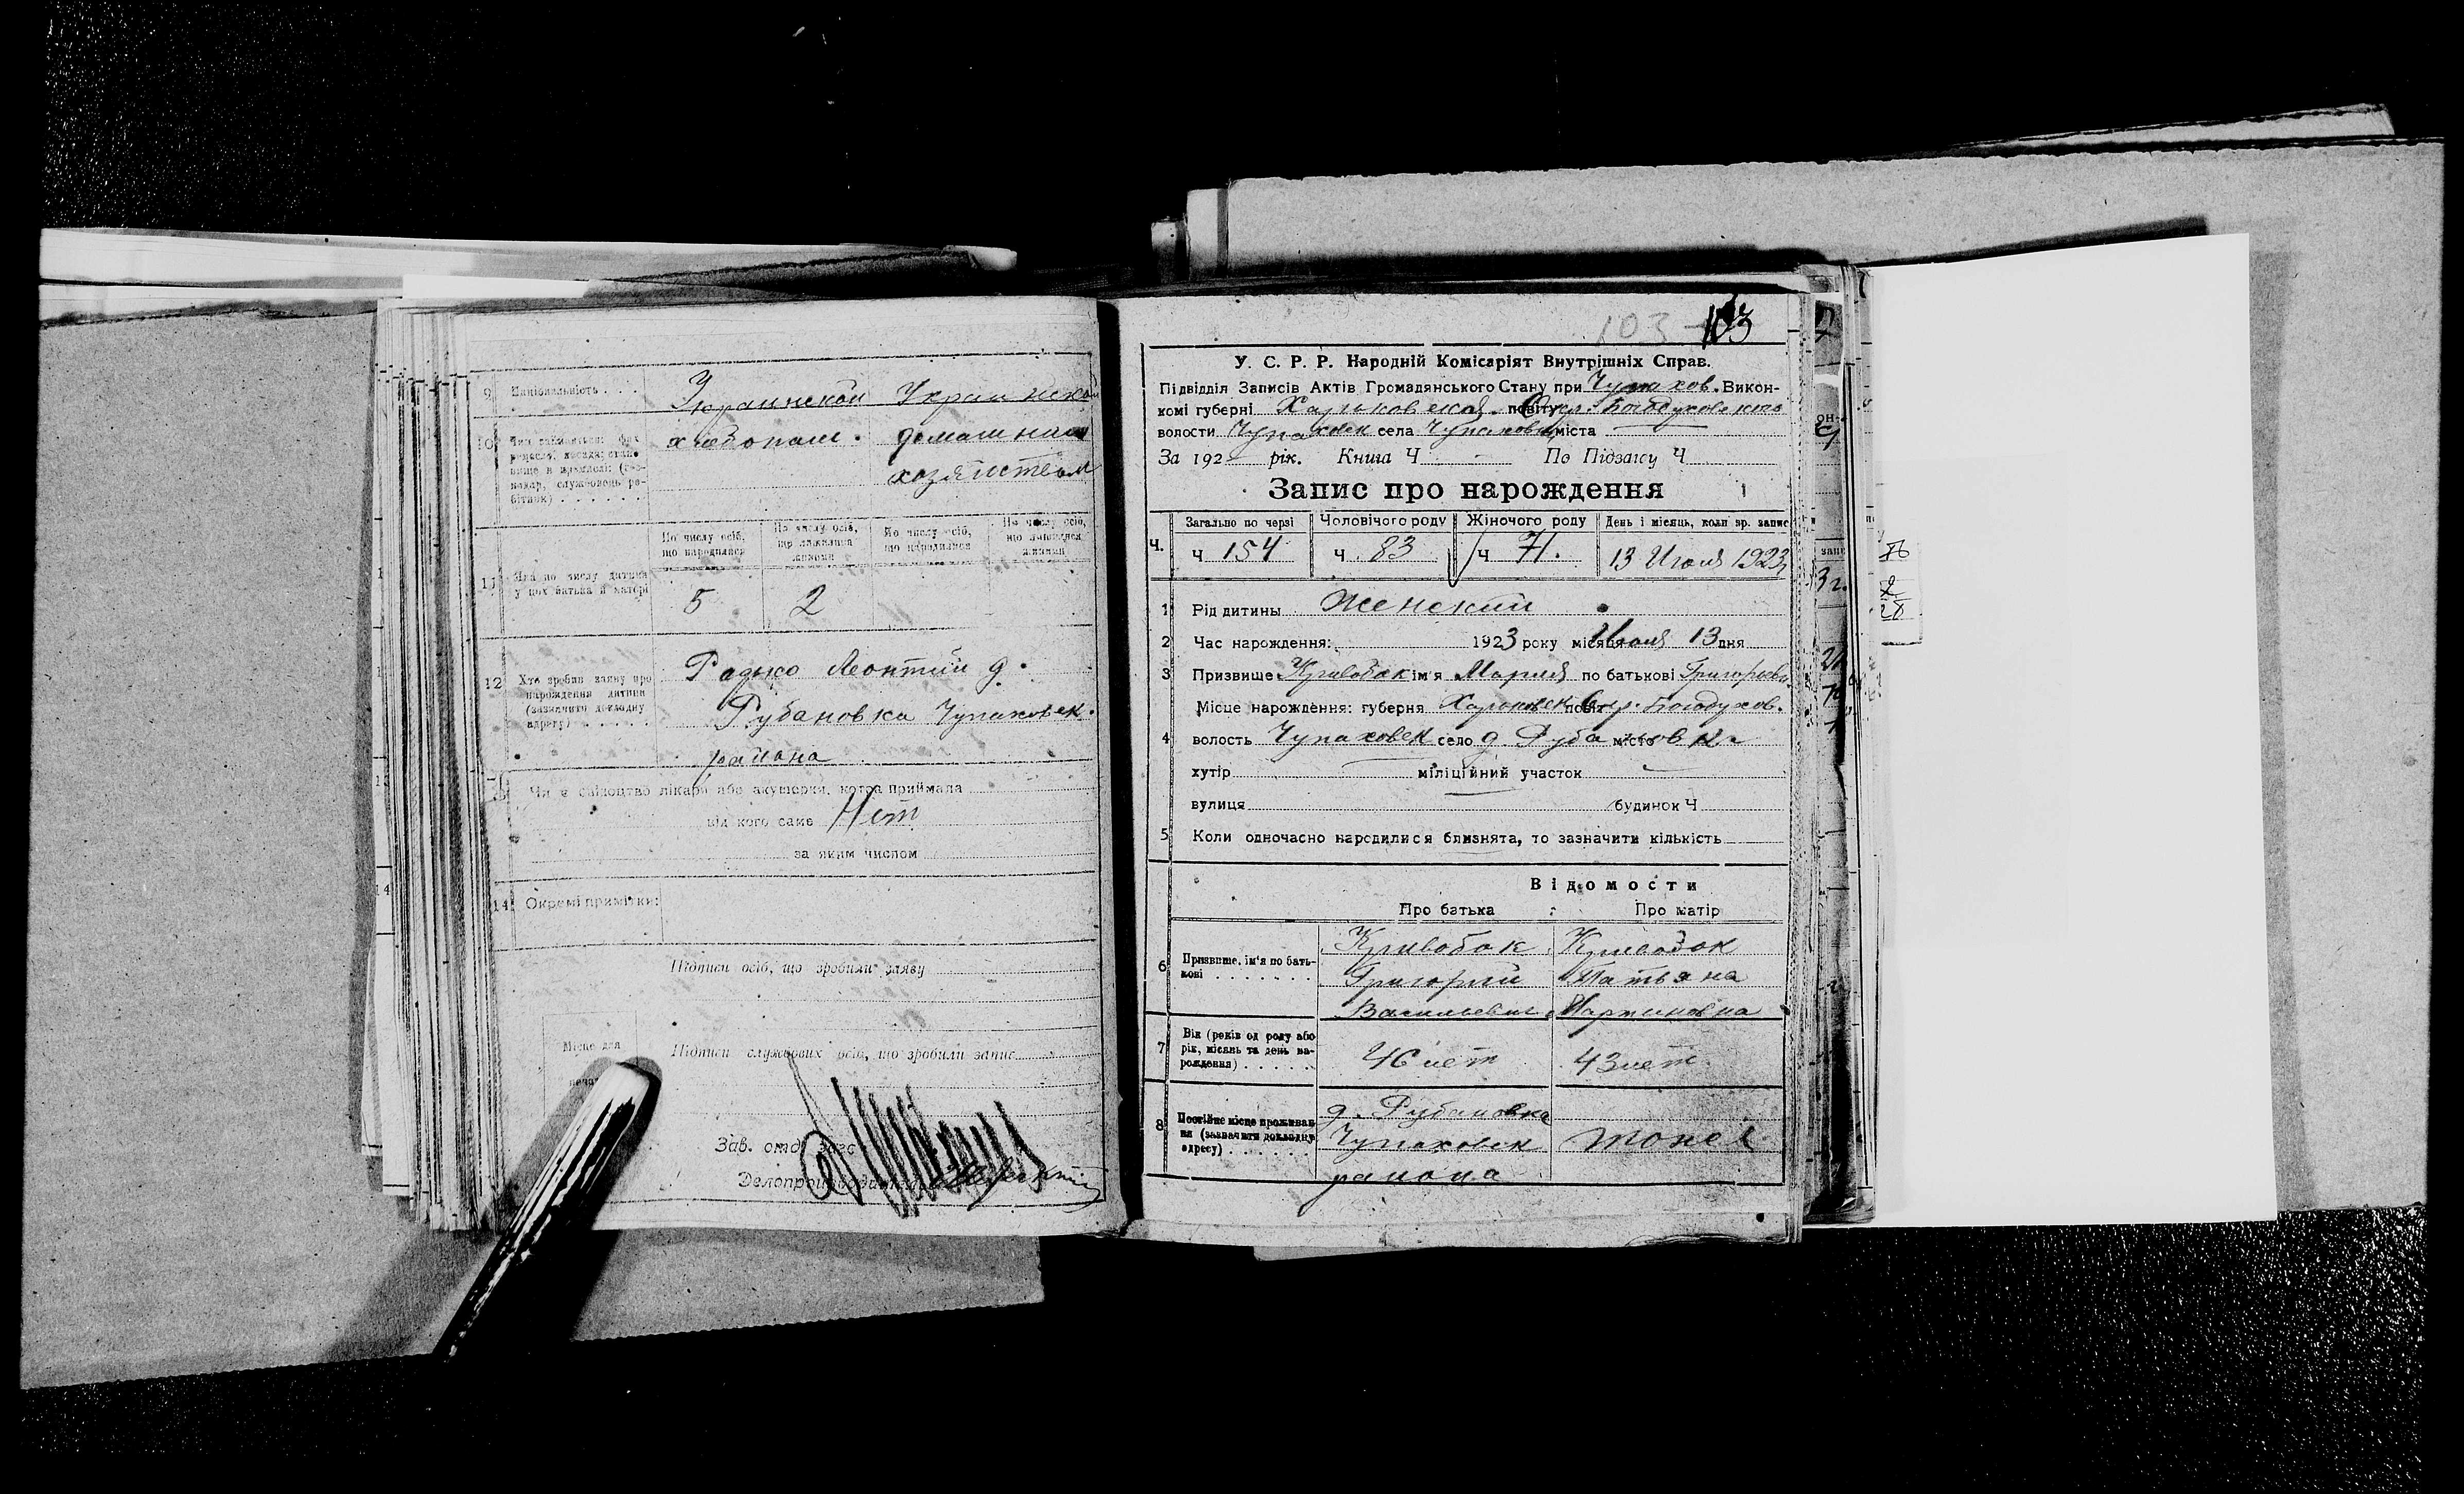 9 Національність . . . Украинской Украинской
10 Чим займається: фах хлебопаш. домашним
ремесло, посада; стано-
вище в промислі: (гос- хозяйством
подар, службовець ро-
бітник) . . . . . . .
По числу осіб, що народилися По числу осіб, що лишилися живими По числу осіб, що народилися По числу осіб, що лишилися живими
11 Яка по числу дитина у цих батька й матері 5 2
12 Хто зробив заяву про нарождення дитини (зазначити докладну адресу) . . . . . .
Радько Леонтий д.
Рубановка Чупаховск.
района
13 Чи є свідоцтво лікаря або акушерки, котра приймала
від кого саме Нет
за яким числом
14 Окремі примітки:
Підписи осіб, що зробили заяву
Місце для
Підписи службових осіб, що зробили запис
Зав. отд. загс
Делопроизводитель
103 103
У. С. Р. Р. Народній Комісаріят Внутрішніх Справ.
Підвідділ Записів Актів Громадянського Стану при Чупахов. Викон-
комі губерні Харьковской повіту Окр. Богодуховского
волости Чупаховск села Чупаховка міста
За 192 рік. Книга Ч По Підзагсу Ч
Запис про нарождення
Ч. Загально по черзі Чоловічого роду Жіночого роду День і місяць, коли зр. запис
ч 154 ч 83 ч 71. 13 Июля 1923
1 Рід дитини Женский
2 Час нарождення: 1923 року місяця Июля 13 дня
3 Призвище Кривобок ім'я Мария по батькові Григорьевн.
Місце нарождення: губерня Харьковск повіт Окр. Богодухов.
4 волость Чупаховск село д. Рубановка місто
хутір міліційний участок
вулиця будинок Ч
5 Коли одночасно народилися близнята, то зазначити кількість
Відомости
Про батька Про матір
6 Призвище, ім'я по бать-
кові . . . . . . .
Кривобок Кривобок
Григорий Татьяна
Васильевич Мартиновна
7 Вік (років од роду або рік, місяць та день на-
рождення) . . . . . 46 лет 43 лет.
8 Постійне місце проживан-
ня (зазначити докладну адресу) . . . . . .
д. Рубановка
Чупаховск тоже
района